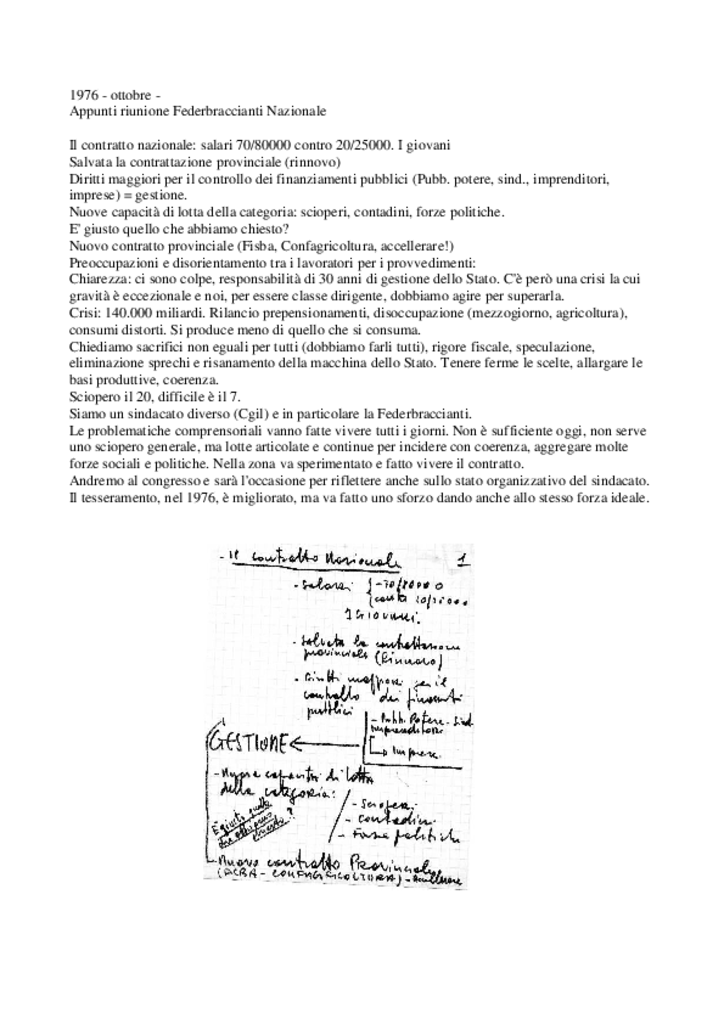 1976 - ottobre -
Appunti riunione Federbraccianti Nazionale
Il contratto nazionale: salari 70/80000 contro 20/25000. I giovani
Salvata la contrattazione provinciale (rinnovo)
Diritti maggiori per il controllo dei finanziamenti pubblici (Pubb. potere, sind., imprenditori,
imprese) = gestione.
Nuove capacità di lotta della categoria: scioperi, contadini, forze politiche.
E' giusto quello che abbiamo chiesto?
Nuovo contratto provinciale (Fisba, Confagricoltura, accellerare!)
Preoccupazioni e disorientamento tra i lavoratori per i provvedimenti:
Chiarezza: ci sono colpe, responsabilità di 30 anni di gestione dello Stato. C'è però una crisi la cui
gravità è eccezionale e noi, per essere classe dirigente, dobbiamo agire per superarla.
Crisi: 140.000 miliardi. Rilancio prepensionamenti, disoccupazione (mezzogiorno, agricoltura),
consumi distorti. Si produce meno di quello che si consuma.
Chiediamo sacrifici non eguali per tutti (dobbiamo farli tutti), rigore fiscale, speculazione,
eliminazione sprechi e risanamento della macchina dello Stato. Tenere ferme le scelte, allargare le
basi produttive, coerenza.
Sciopero il 20, difficile è il 7.
Siamo un sindacato diverso (Cgil) e in particolare la Federbraccianti.
Le problematiche comprensoriali vanno fatte vivere tutti i giorni. Non è sufficiente oggi, non serve
uno sciopero generale, ma lotte articolate e continue per incidere con coerenza, aggregare molte
forze sociali e politiche. Nella zona va sperimentato e fatto vivere il contratto.
Andremo al congresso e sarà l'occasione per riflettere anche sullo stato organizzativo del sindacato.
Il tesseramento, nel 1976, è migliorato, ma va fatto uno sforzo dando anche allo stesso forza ideale.
- Il contratto Nazionale 1
- Salari
I Giovani.
- Salvata la contrattazione
provinciale (Rinnovo)
- Diritti maggiori per il
controllo dei
pubblici
- Pubb. Potere - Sind.
imprenditori
Imprese
GESTIONE
- Nuove capacità di lotta
della categoria:
- Scioperi
- Contadini
- Forze politiche
E' giusto quello
che abbiamo
chiesto?
- Nuovo contratto Provinciale
CONFAGRICOLTURA)